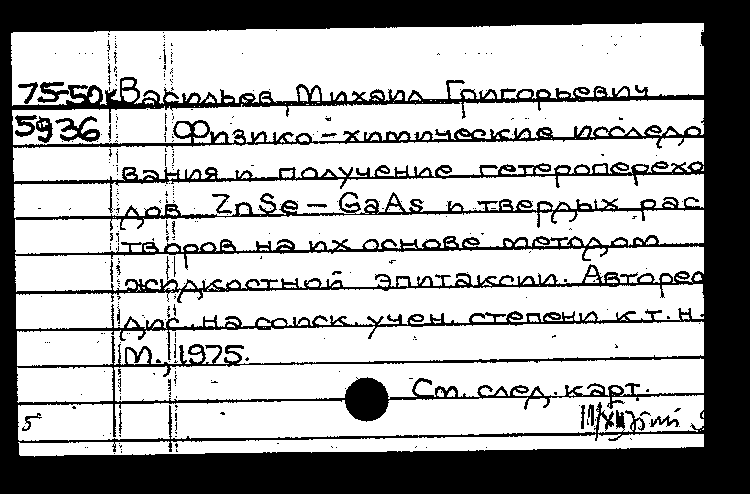 75-50к Васильев, Михаил Григорьевич
5936 Физико-химические исследо
вания и получение гетероперехо
дов ZnSe - GaAs и твердых рас
творов на их основе методом
жидкостной эпитаксии. Авторе
дис. на соиск. учен. степени к.т.н.
М., 1975.
См. след. карт.
5